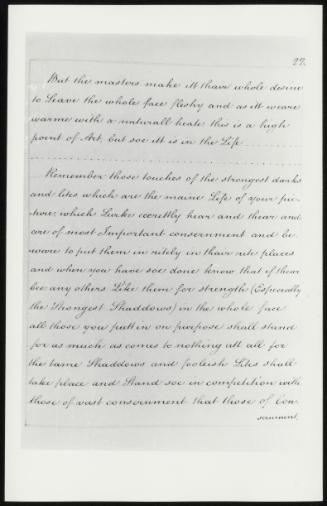 27.
But the masters make itt thair whole desire
to Leave the whole face fleshy and as itt weare
warme with a naturall heate this is a high
point of Art, but soe itt is in the Life
Remember those touches of the strongest darks
and lites which are the maine Life of your pic-
ture; which Lurke cecrettly hear and thear and
are of most Important consernment and be
ware to put them in ritely in thair rite places
and when you have soe done know that if thear
bee any others Like them for strength (Especially
the Strongest Shaddows) in the whole face
all those you putt in on purpose shall stand
for as much as comes to nothing att all for
the tame Shaddows and foolish Lites shall
take place and Stand soe in competition with
those of vast consernment that those of Con-
sernment